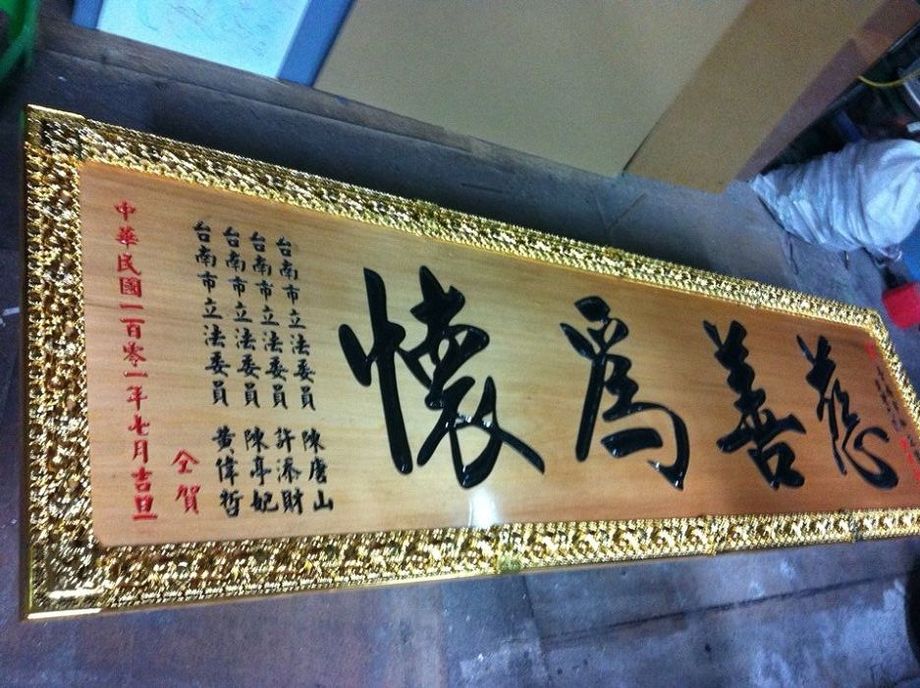 慈善爲懷
台南市立法委員 陳唐山
台南市立法委員 許添財
台南市立法委員 陳亭妃
台南市立法委員 黃偉哲
仝賀
中華民國一百零一年七月吉旦